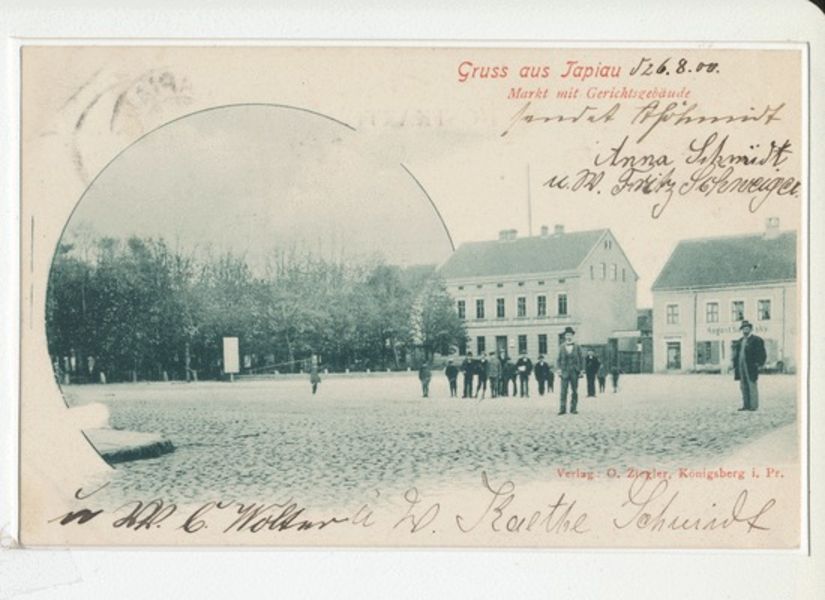 Gruss aus Tapiau d 26.8.00.
Markt mit Gerichtsgebäude
sendet
Anna Schmidt
u. W. Fritz Schweiger
August
Verlag: O. Ziegler, Königsberg i. Pr.
u W. C. Wolter u W. Kaethe Schmidt